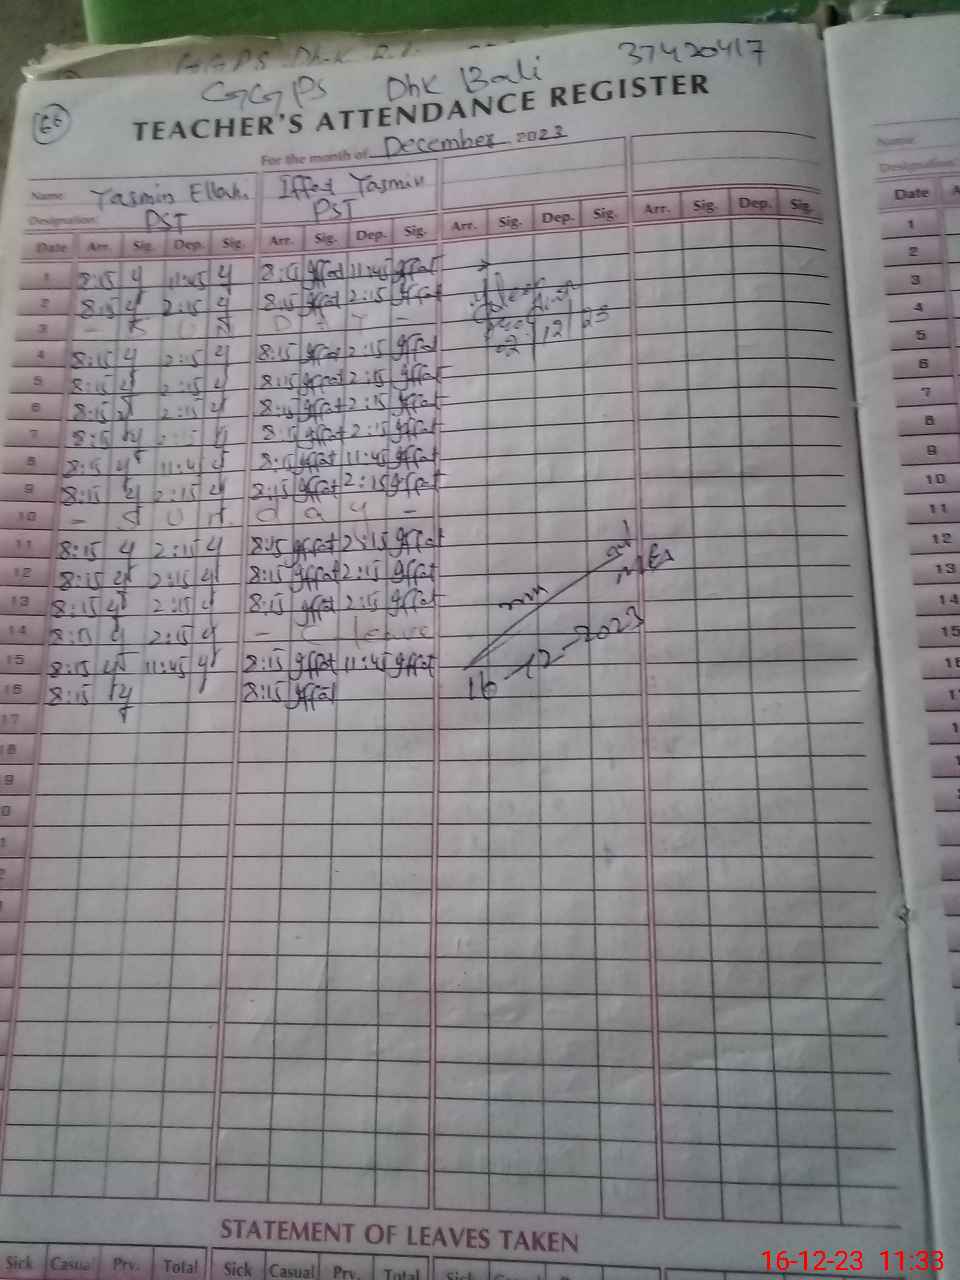 GGPS Dhk Bali 37420417
66
TEACHER'S ATTENDANCE REGISTER
For the month of December 2023
Name Yasmin Ellahi Iffat Yasmin
Designation PST PST
Date Arr. Sig. Dep. Sig. Arr. Sig. Dep. Sig. Arr. Sig. Dep. Sig. Arr. Sig. Dep. Sig.
1 8:15 11:45 8:15 Iffat 11:45 Iffat
2 8:15 2:15 8:15 Iffat 2:15 Iffat
3 D A Y -
4 8:15 2:15 8:15 Iffat 2:15 Iffat
02/12/23
5 8:15 2:15 8:15 Iffat 2:15 Iffat
6 8:15 2:15 8:15 Iffat 2:15 Iffat
7 8:15 2:15 8:15 Iffat 2:15 Iffat
8 8:15 11:45 8:15 Iffat 11:45 Iffat
9 8:15 2:15 8:15 Iffat 2:15 Iffat
10 - S U n d a y -
11 8:15 2:15 8:15 Iffat 2:15 Iffat
12 8:15 2:15 8:15 Iffat 2:15 Iffat
MEA
13 8:15 2:15 8:15 Iffat 2:15 Iffat
14 8:15 2:15 - C leave
15 8:15 11:45 8:15 Iffat 11:45 Iffat
16 8:15 8:15 Iffat
16-12-2023
17
18
STATEMENT OF LEAVES TAKEN
Sick Casual Prv. Total Sick Casual Prv. Total Sick
Name
Designation
Date
1
2
3
4
5
6
7
8
9
10
11
12
13
14
15
16-12-23 11:33